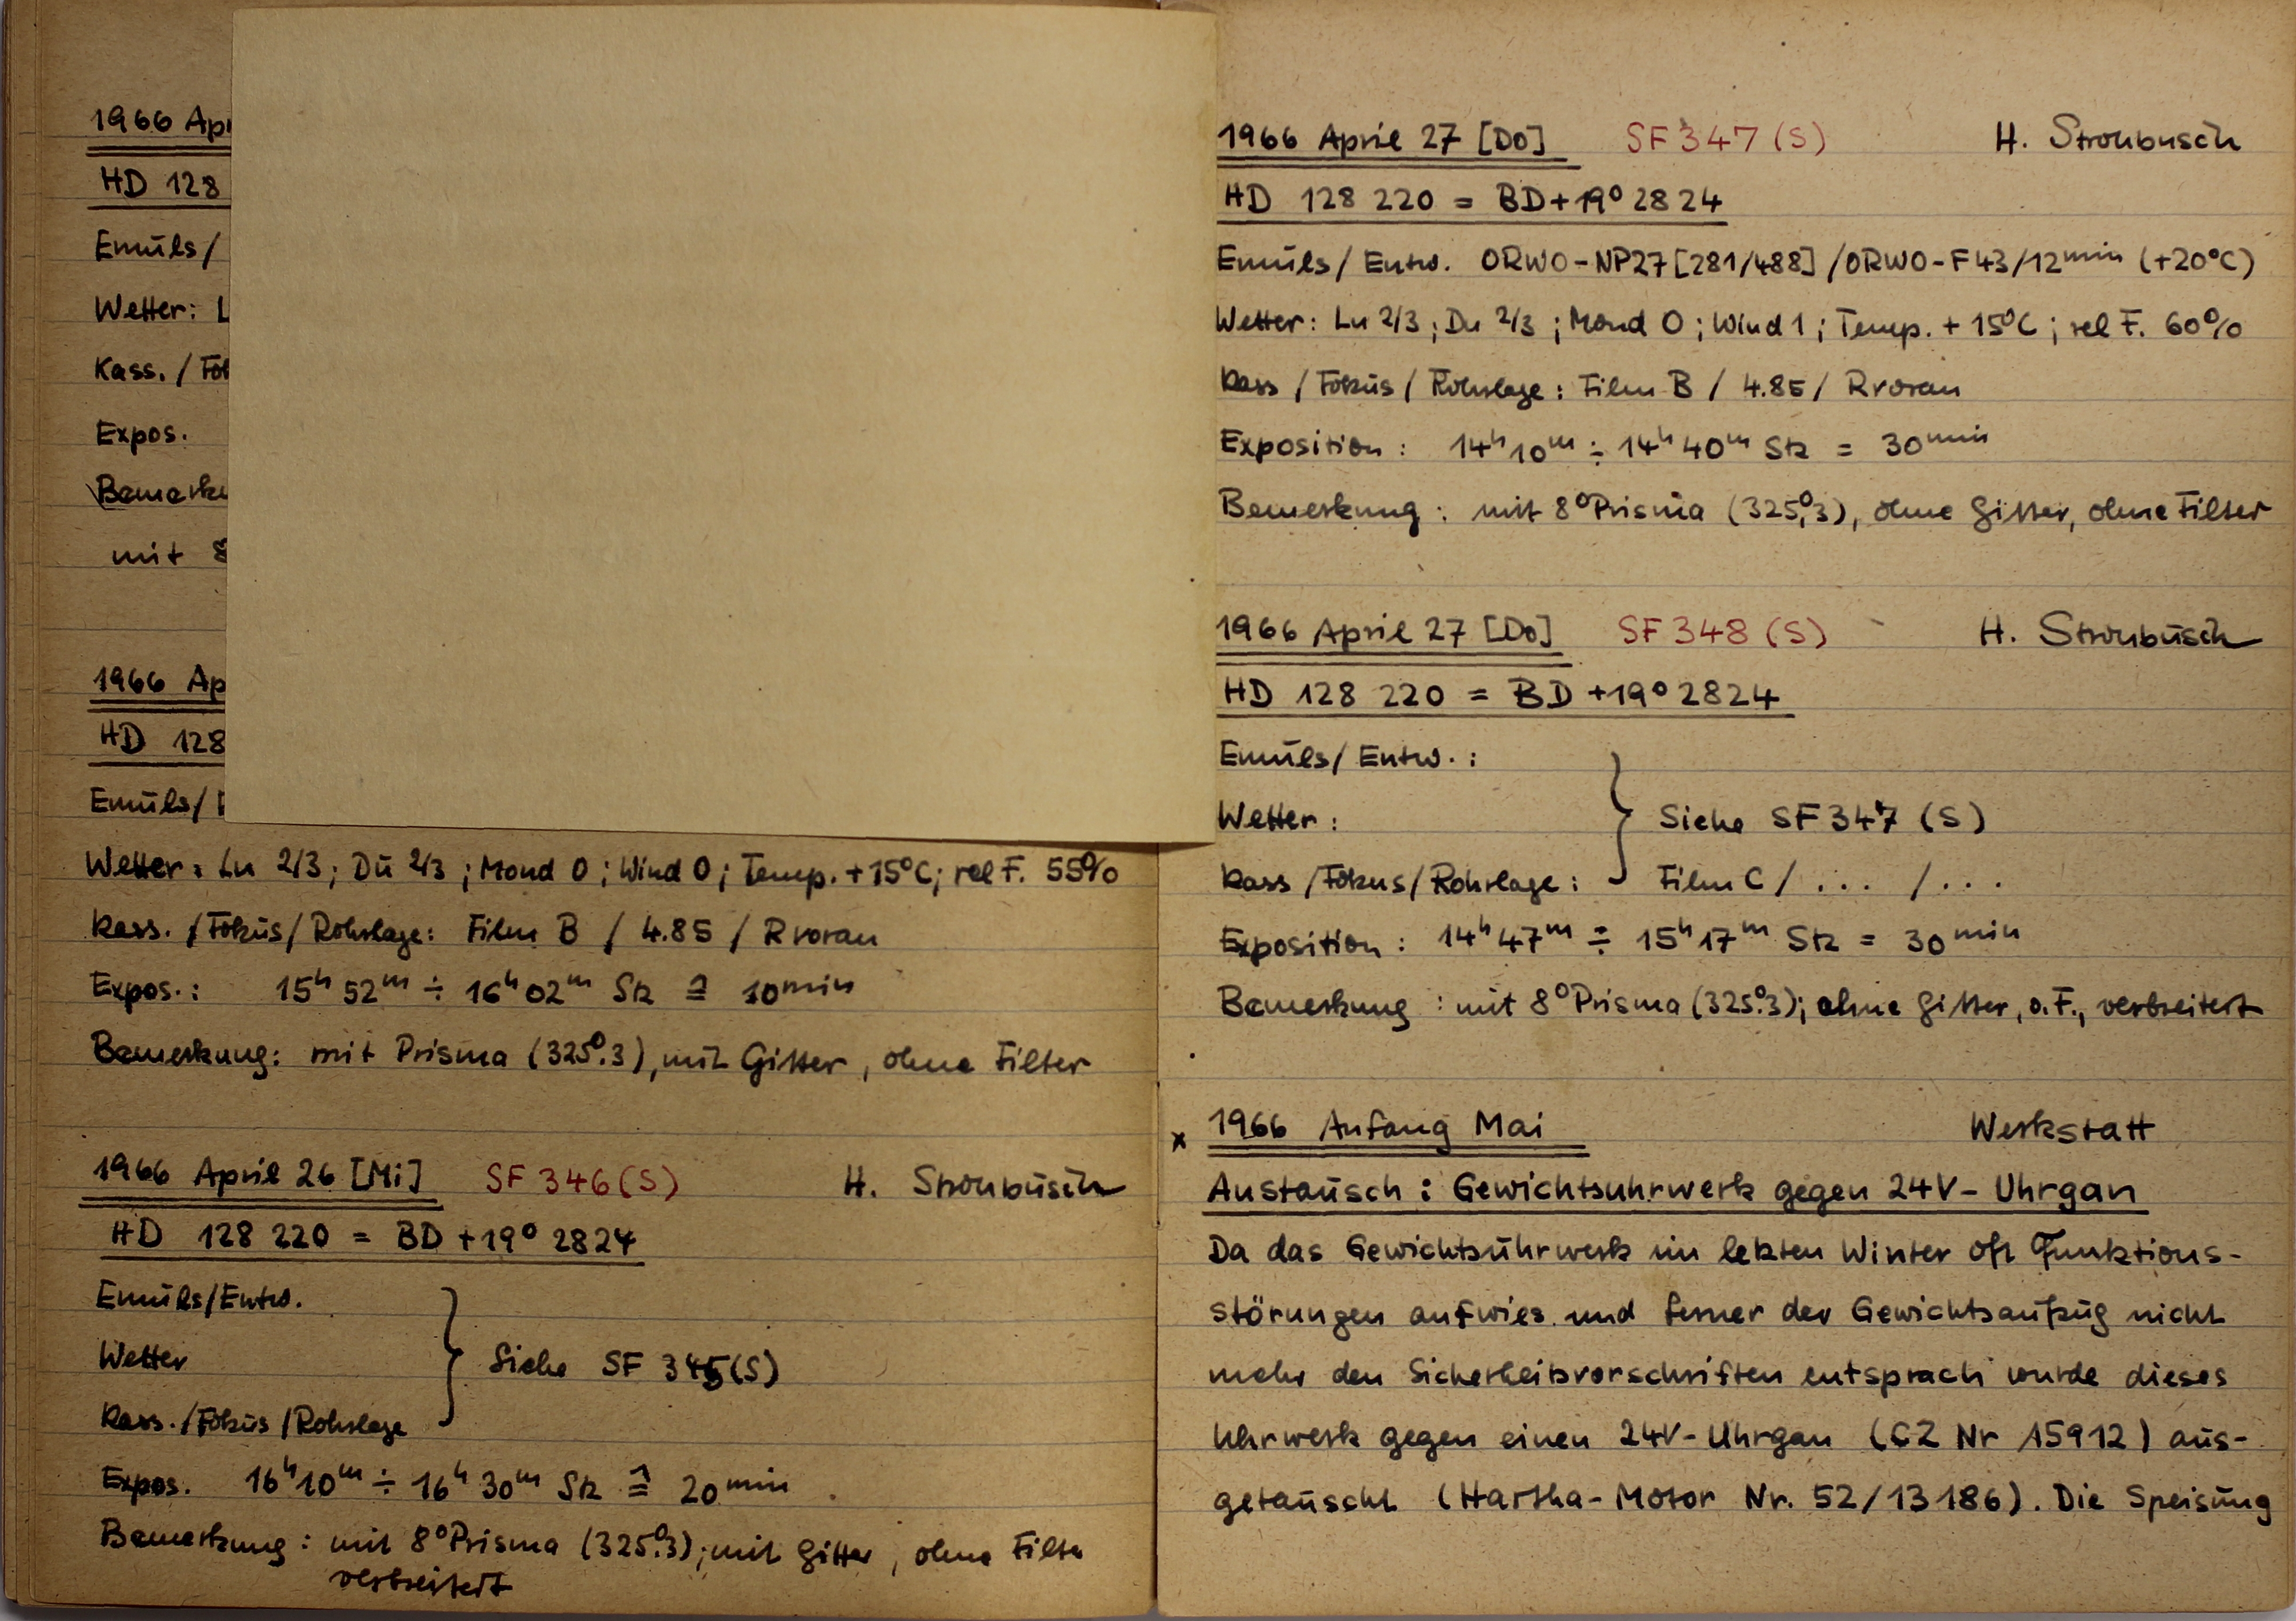 1966 Ap
HD 128
Emuls/
Wetter: L
Kass. / Fo
Expos.
Bemerku
mit 8
1966 Ap
HD 128
Emuls/
Wetter: Lu 2/3; Du 2/3; Mond 0; Wind 0; Temp. +15°C; rel F. 55%
Kass. / Fokus / Rohrlage: Film B / 4.85 / R voran
Expos.: 15ʰ 52ᵐ ÷ 16ʰ 02ᵐ Stz ≙ 10ᵐⁱⁿ
Bemerkung: mit Prisma (325°.3), mit Gitter, ohne Filter
1966 April 26 [Mi] SF 346 (S) H. Strohbusch
HD 128 220 = BD +19° 2824
Emuls/Entw.
Wetter } Siehe SF 345(S)
Kass. / Fokus / Rohrlage
Expos. 16ʰ 10ᵐ ÷ 16ʰ 30ᵐ Stz ≙ 20ᵐⁱⁿ
Bemerkung: mit 8° Prisma (325°.3); mit Gitter, ohne Filter
verbreitert
1966 April 27 [Do] SF 347 (S) H. Strohbusch
HD 128 220 = BD+19° 2824
Emuls/ Entw. ORWO-NP27 [281/488] / ORWO-F43/12ᵐⁱⁿ (+20°C)
Wetter: Lu 2/3; Du 2/3; Mond 0; Wind 1; Temp. + 15°C; rel F. 60%
Kass / Fokus / Rohrlage: Film B / 4.85 / R voran
Exposition: 14ʰ 10ᵐ ÷ 14ʰ 40ᵐ Stz = 30ᵐⁱⁿ
Bemerkung: mit 8° Prisma (325°,3), ohne Gitter, ohne Filter
1966 April 27 [Do] SF 348 (S) H. Strohbusch
HD 128 220 = BD +19° 2824
Emuls/ Entw.:
Wetter: } Siehe SF 347 (S)
Kass / Fokus / Rohrlage: Film C / ... / ...
Exposition: 14ʰ 47ᵐ ÷ 15ʰ 17ᵐ Stz = 30ᵐⁱⁿ
Bemerkung: mit 8° Prisma (325°.3); ohne Gitter, o. F., verbreitert
x 1966 Anfang Mai Werkstatt
Austausch: Gewichtsuhrwerk gegen 24V- Uhrgan
Da das Gewichtsuhrwerk im letzten Winter oft Funktions-
störungen aufwies und ferner der Gewichtsaufzug nicht
mehr den Sicherheitsvorschriften entsprach wurde dieses
Uhrwerk gegen einen 24V- Uhrgan (CZ Nr 15912) aus-
getauscht (Hartha-Motor Nr. 52/13186). Die Speisung